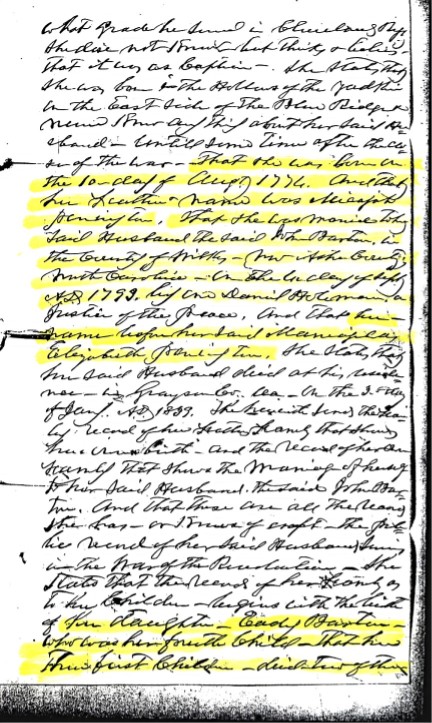 what grade he served in Cleveland's Regt
She does not Know but thinks & believes
that it was as Captain - She States that
she was born in the Hollows of the Yadkin
on the East side of the Blue Ridge &
never Knew any thing about her said Hus
band - until some time after the clo
se of the war - That she was born on
the 10 day of Augt 1774. And that
her Father's name was Micajah
Penington. That she was married to her
said Husband the said John Baxton, in
the County of Wilks - now Ashe County
North Carolina - On the day of
AD, 1793. by one Daniel a
Justice of the Peace, And that her
name before her said Marriage was
Elizabeth Penington. She States that
her said Husband died at his reside
nce - in Grayson Co. Va - On the 3. day
of Jany AD, 1839. She herewith sends the fa
ly record of her Father's family that shows
her own birth - and the record of her own
family that shows the Marriage of herself
to her said Husband. the said John Bax
ton. And that these are all the records
she has - or Knows of except - the pub
lic record of her said Husband's services
in the War of the Revolution - She
States that the record of her family as
to her Children - begins with the birth
of her daughter - Cady Baxton -
who was her fourth Child - that her
three first Children - died two of them